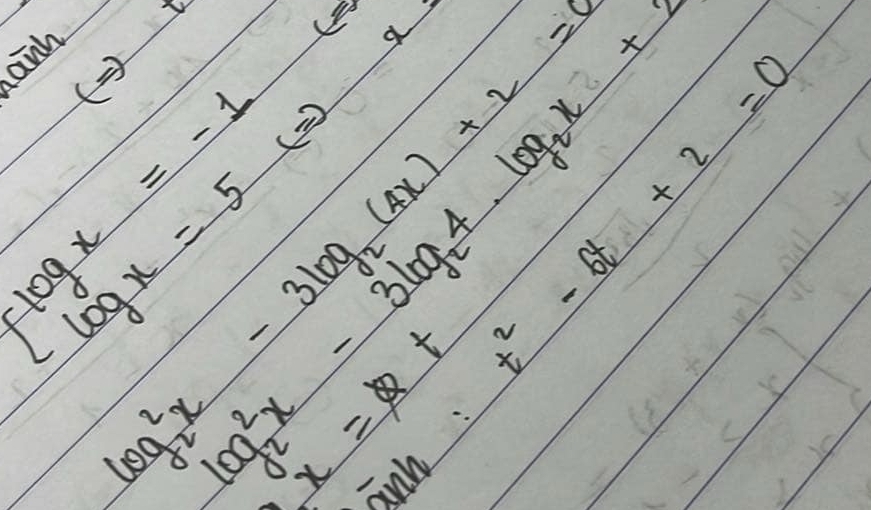 (=)
[ log x = -1 (=)
log x = 5 (=) x =
log₂²x - 3log₂(4x) + 2 = 0
log₂²x - 3log₂4 . log₂x + 2
x = t
: t² - 6t + 2 = 0